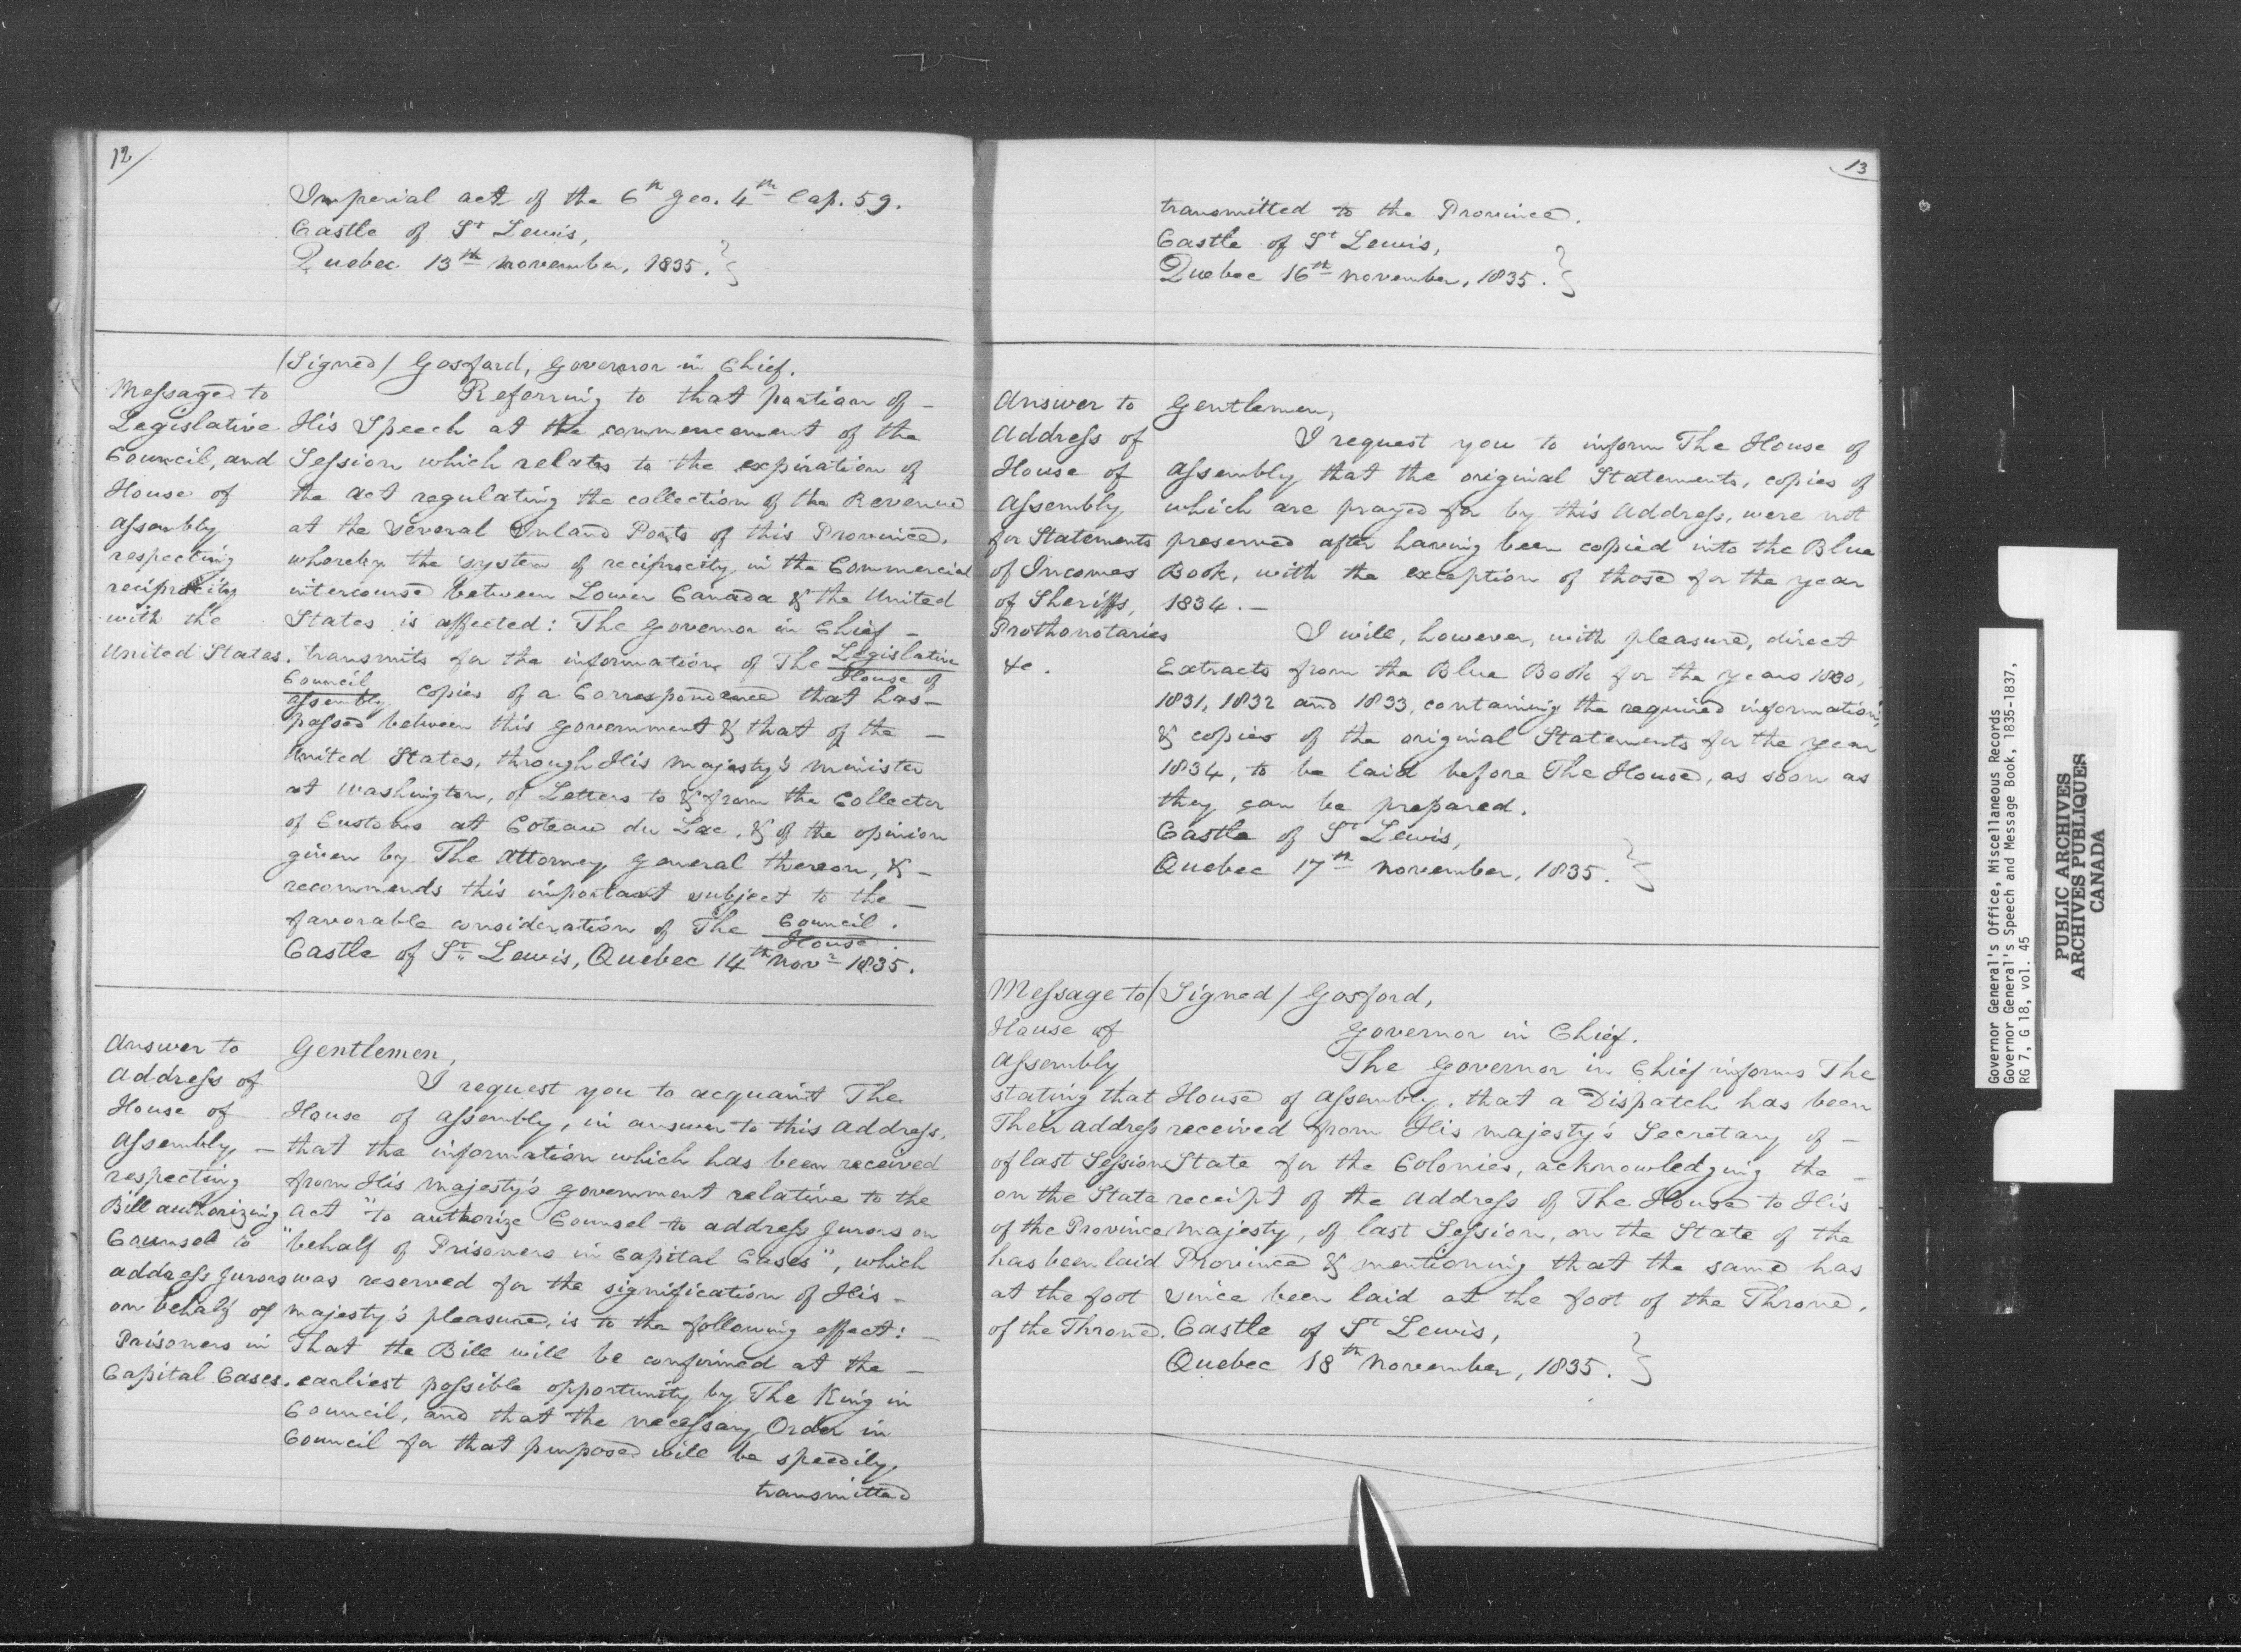 12/
Imperial act of the 6th Geo. 4th Cap. 59.
Castle of St Lewis,
Quebec 13th November, 1835.}
(Signed) Gosford, Governor in Chief.
Message to
Legislative
Council, and
House of
Assembly
respecting
reciprocity
with the
United States.
Referring to that portion of –
His Speech at the commencement of the
Session which relates to the expiration of
the Act regulating the collection of the Revenue
at the several Inland Ports of this Province,
whereby the system of reciprocity in the Commercial
intercourse between Lower Canada & the United
States is affected: The Governor in Chief –
transmits for the information of The Legislative
House of
Council
Assembly copies of a Correspondence that has –
passed between this Government & that of the –
United States, through His Majesty's Minister
at Washington, of Letters to & from the Collector
of Customs at Coteau du Lac, & of the opinion
given by The Attorney General thereon, & –
recommends this important subject to the –
favorable consideration of The Council.
House.
Castle of St. Lewis, Quebec 14th Novr 1835.
Answer to
Address of
House of
Assembly, –
respecting
Bill authorizing
Counsel to
address Jurors
on behalf of
Prisoners in
Capital Cases.
Gentlemen,
I request you to acquaint The
House of Assembly, in answer to this Address,
that the information which has been received
from His Majesty's Government relative to the
Act "to authorize Counsel to address Jurors on
"behalf of Prisoners in Capital Cases", which
was reserved for the signification of His –
Majesty's pleasure, is to the following effect: –
That the Bill will be confirmed at the –
earliest possible opportunity by The King in
Council, and that the necessary Order in
Council for that purpose will be speedily
transmitted
13
transmitted to the Province.
Castle of St Lewis,
Quebec 16th November, 1835.}
Answer to
Address of
House of
Assembly
for Statements
of Incomes
of Sheriffs,
Prothonotaries
&c.
Gentlemen,
I request you to inform The House of
Assembly that the original Statements, copies of
which are prayed for by this Address, were not
preserved after having been copied into the Blue
Book, with the exception of those for the year
1834. –
I will, however, with pleasure, direct
Extracts from the Blue Book for the years 1830,
1831, 1832 and 1833, containing the required information,
& copies of the original Statements for the year
1834, to be laid before The House, as soon as
they can be prepared.
Castle of St Lewis,
Quebec 17th November, 1835.}
Message to
House of
Assembly
stating that
Their address
of last Session
on the State
of the Province
has been laid
at the foot
of the Throne.
(Signed) Gosford,
Governor in Chief.
The Governor in Chief informs The
House of Assembly, that a Dispatch has been
received from His Majesty's Secretary of –
State for the Colonies, acknowledging the –
receipt of the Address of The House to His
Majesty, of last Session, on the State of the
Province & mentioning that the same has
since been laid at the foot of the Throne.
Castle of St Lewis,
Quebec 18th November, 1835.}
Governor General's Office, Miscellaneous Records
Governor General's Speech and Message Book, 1835-1837,
RG 7, G 18, vol. 45
PUBLIC ARCHIVES
ARCHIVES PUBLIQUES
CANADA